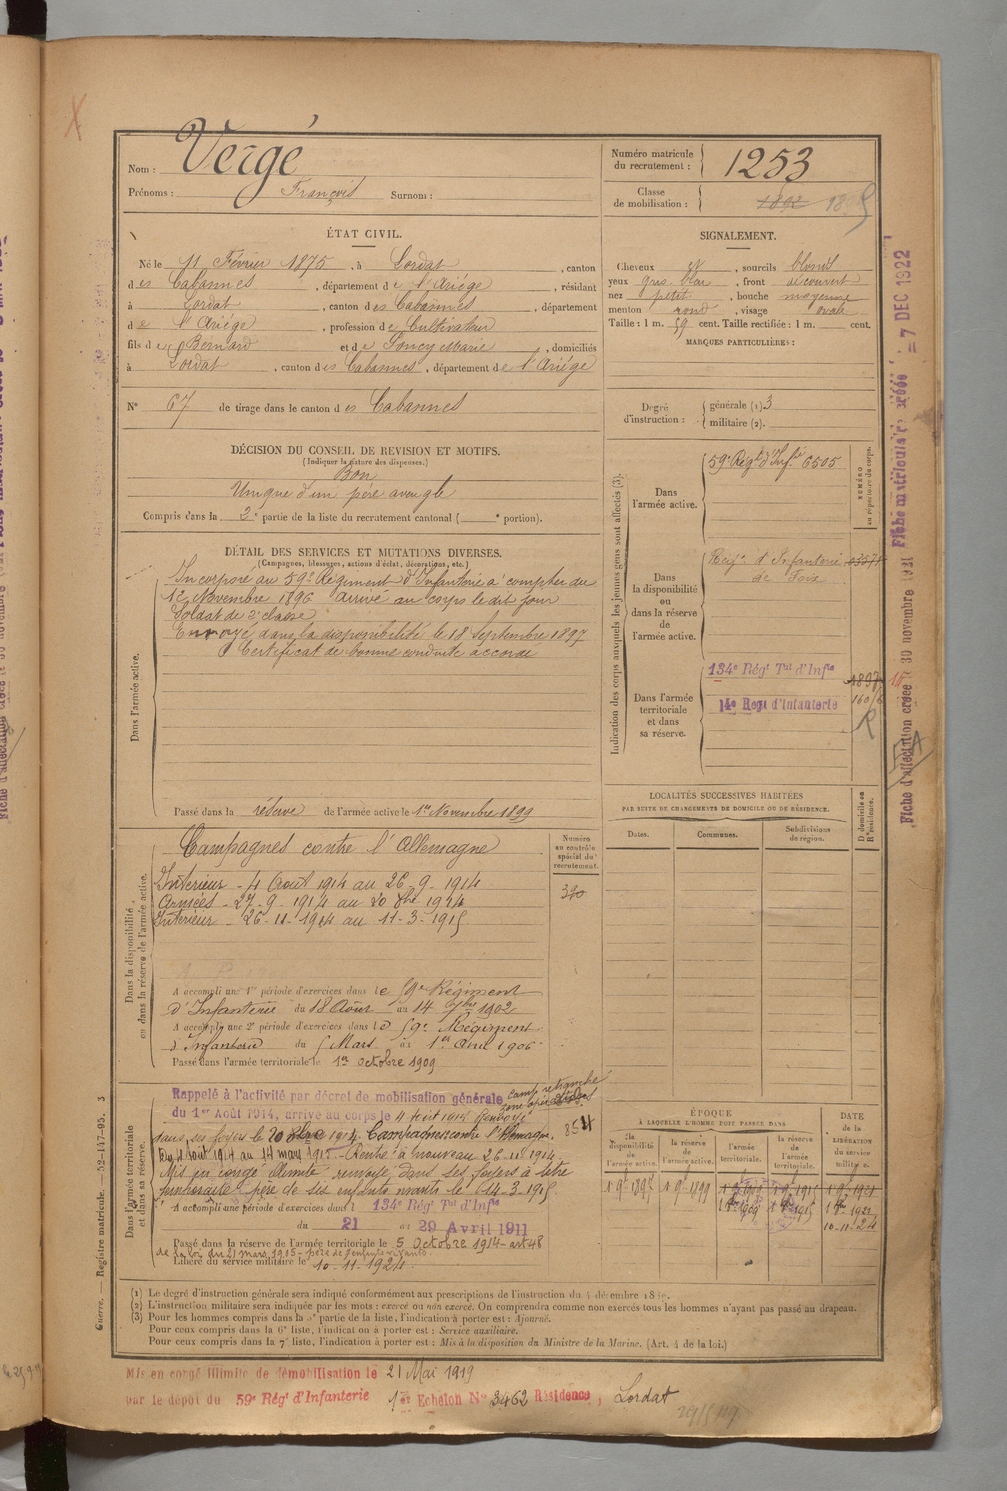 Vergé
Nom :
Prénoms : François Surnom :
Numéro matricule du recrutement : 1253
Classe de mobilisation : 1892
ÉTAT CIVIL.
Né le 11 Février 1875, à Lordat, canton
des Cabannes, département de l'Ariège, résidant
à Lordat, canton des Cabannes, département
de l'Ariège, profession de Cultivateur
fils de Bernard et de Soucy Marie, domiciliés
à Lordat, canton des Cabannes, département de l'Ariège
N° 67 de tirage dans le canton des Cabannes
SIGNALEMENT.
Cheveux et, sourcils blonds
yeux gris bleu, front découvert
nez petit, bouche moyenne
menton rond, visage ovale
Taille : 1 m. 59 cent. Taille rectifiée : 1 m. cent.
MARQUES PARTICULIÈRES :
Degré d'instruction : générale (1) 3
militaire (2).
DÉCISION DU CONSEIL DE REVISION ET MOTIFS.
(Indiquer la nature des dispenses.)
Bon
Unique d'un père aveugle
Compris dans la 2e partie de la liste du recrutement cantonal ( e portion).
DÉTAIL DES SERVICES ET MUTATIONS DIVERSES.
(Campagnes, blessures, actions d'éclat, décorations, etc.)
Dans l'armée active.
Incorporé au 59e Régiment d'Infanterie à compter du
1er Novembre 1896 arrivé au corps le dit jour
Soldat de 2e classe
Envoyé dans la disponibilité le 18 Septembre 1897
Certificat de bonne conduite accordé
Passé dans la réserve de l'armée active le 1er Novembre 1899
Indication des corps auxquels les jeunes gens sont affectés (3).
NUMÉRO au répertoire du corps.
Dans l'armée active.
59e Régt d'Infie 6505
Dans la disponibilité ou dans la réserve de l'armée active.
Régt d'Infanterie
de Foix
Dans l'armée territoriale et dans sa réserve.
134e Régt Tal d'Infie
14e Régt d'Infanterie
LOCALITÉS SUCCESSIVES HABITÉES
PAR SUITE DE CHANGEMENTS DE DOMICILE OU DE RÉSIDENCE.
Dates. Communes. Subdivisions de région.
D domicile ou R résidence.
Dans la disponibilité ou dans la réserve de l'armée active.
Numéro au contrôle spécial du recrutement.
Campagnes contre l'Allemagne
Intérieur - 4 Aout 1914 au 26-9-1914
Armées - 27-9-1914 au 20 8bre 1914
Intérieur - 26-11-1914 au 11-3-1915
A accompli une 1re période d'exercices dans le 59e Régiment
d'Infanterie du 18 Août au 14 7bre 1902
A accompli une 2e période d'exercices dans le 59e Régiment
d'Infanterie du 5 Mars au 1er Avril 1906
Passé dans l'armée territoriale le 1er octobre 1909
Dans l'armée territoriale et dans sa réserve.
Rappelé à l'activité par décret de mobilisation générale
du 1er Août 1914, arrivé au corps le 4 Août 1914. Renvoyé
camp retranché
dans ses foyers le 20 8bre 1914. Campagne contre l'Allemagne.
Du 4 Aout 1914 au 14 mars 1915 - Rentré à nouveau 26-11-1914
Mis en congé illimité renvoyé dans ses foyers à titre
père de six enfants vivants le 14-3-1915
854
A accompli une période d'exercices dans l 134e Régt Tal d'Infie
du 21 au 29 Avril 1911
Passé dans la réserve de l'armée territoriale le 5 Octobre 1914 - art 48
de la loi du 21 mars 1905 - père de enfants vivants.
Libéré du service militaire le 10-11-1924
ÉPOQUE
À LAQUELLE L'HOMME DOIT PASSER DANS
la disponibilité de l'armée active. la réserve de l'armée active. l'armée territoriale. la réserve de l'armée territoriale.
DATE de la LIBÉRATION du service militaire.
1 9bre 1897 1 9bre 1899
10-11-24
(1) Le degré d'instruction générale sera indiqué conformément aux prescriptions de l'instruction du 4 décembre
(2) L'instruction militaire sera indiquée par les mots : exercé ou non exercé. On comprendra comme non exercés tous les hommes n'ayant pas passé au drapeau.
(3) Pour les hommes compris dans la 5e partie de la liste, l'indication à porter est : Ajourné.
Pour ceux compris dans la 6e liste, l'indication à porter est : Service auxiliaire.
Pour ceux compris dans la 7e liste, l'indication à porter est : Mis à la disposition du Ministre de la Marine. (Art. 4 de la loi.)
Mis en congé illimité de démobilisation le 21 Mai 1919
par le dépôt du 59e Régt d'Infanterie 1er Echelon N° 3462 Résidence, Lordat
Guerre. — Registre matricule. — 52-147-95. 3
Fiche d'affectation créée le 30 novembre 1921
Fiche matriculaire créée le = 7 DEC 1922